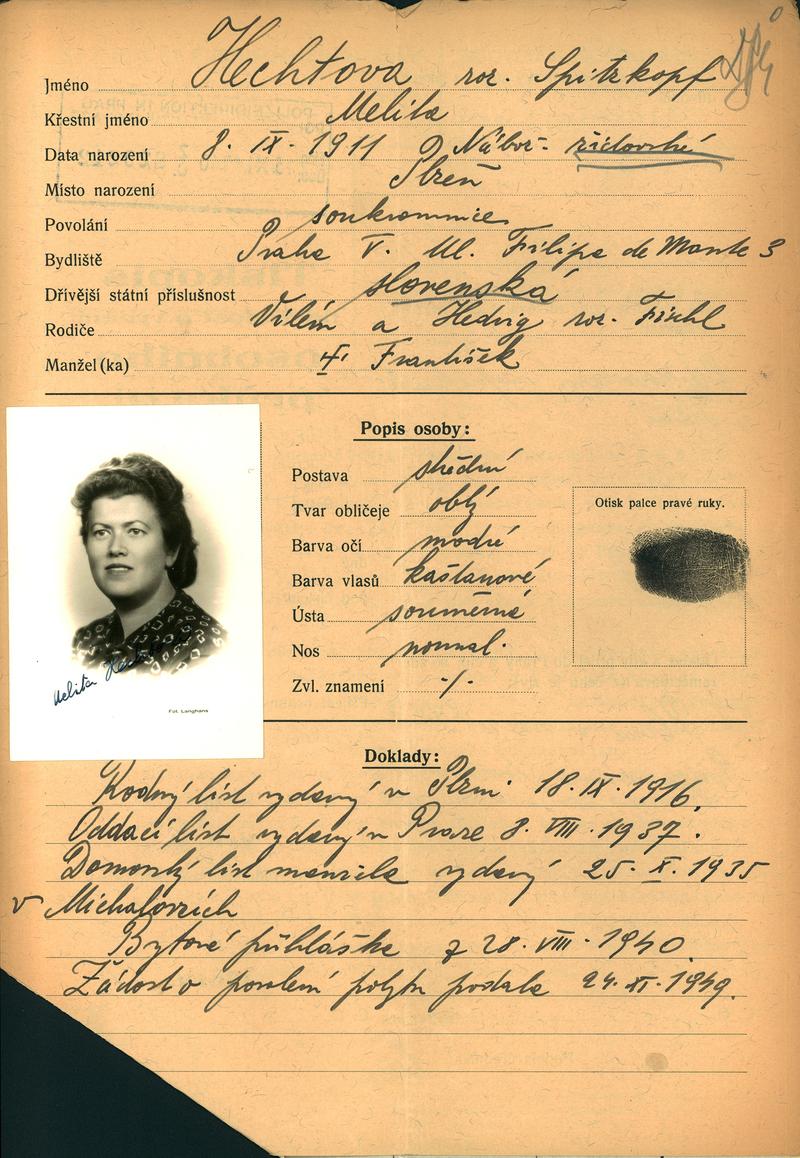 Jméno Hechtova roz. Spitzkopf
Křestní jméno Melita
Data narození 8. IX. 1911 Nábož- židovské
Místo narození Plzeň
Povolání soukromnice
Bydliště Praha V. Ul. Filipa de Monte 3
Dřívější státní příslušnost slovenská
Rodiče Vilém a Hedvig roz. Fischl
Manžel (ka) František
Popis osoby:
Postava střední
Tvar obličeje oblý
Barva očí modré
Barva vlasů kaštanové
Ústa souměrné
Nos normal.
Zvl. znamení -/-
Otisk palce pravé ruky.
Melita Hechtova
Fot. Langhans
Doklady:
Rodný list vydaný v Plzni 18. IX. 1916.
Oddací list vydaný v Praze 8. VIII. 1937.
Domovský list manžela vydaný 25. X. 1935
v Michalovcích
Bytové přihláška z 28. VIII. 1940.
Žádost o povolení pobytu podala 24. XI. 1949.